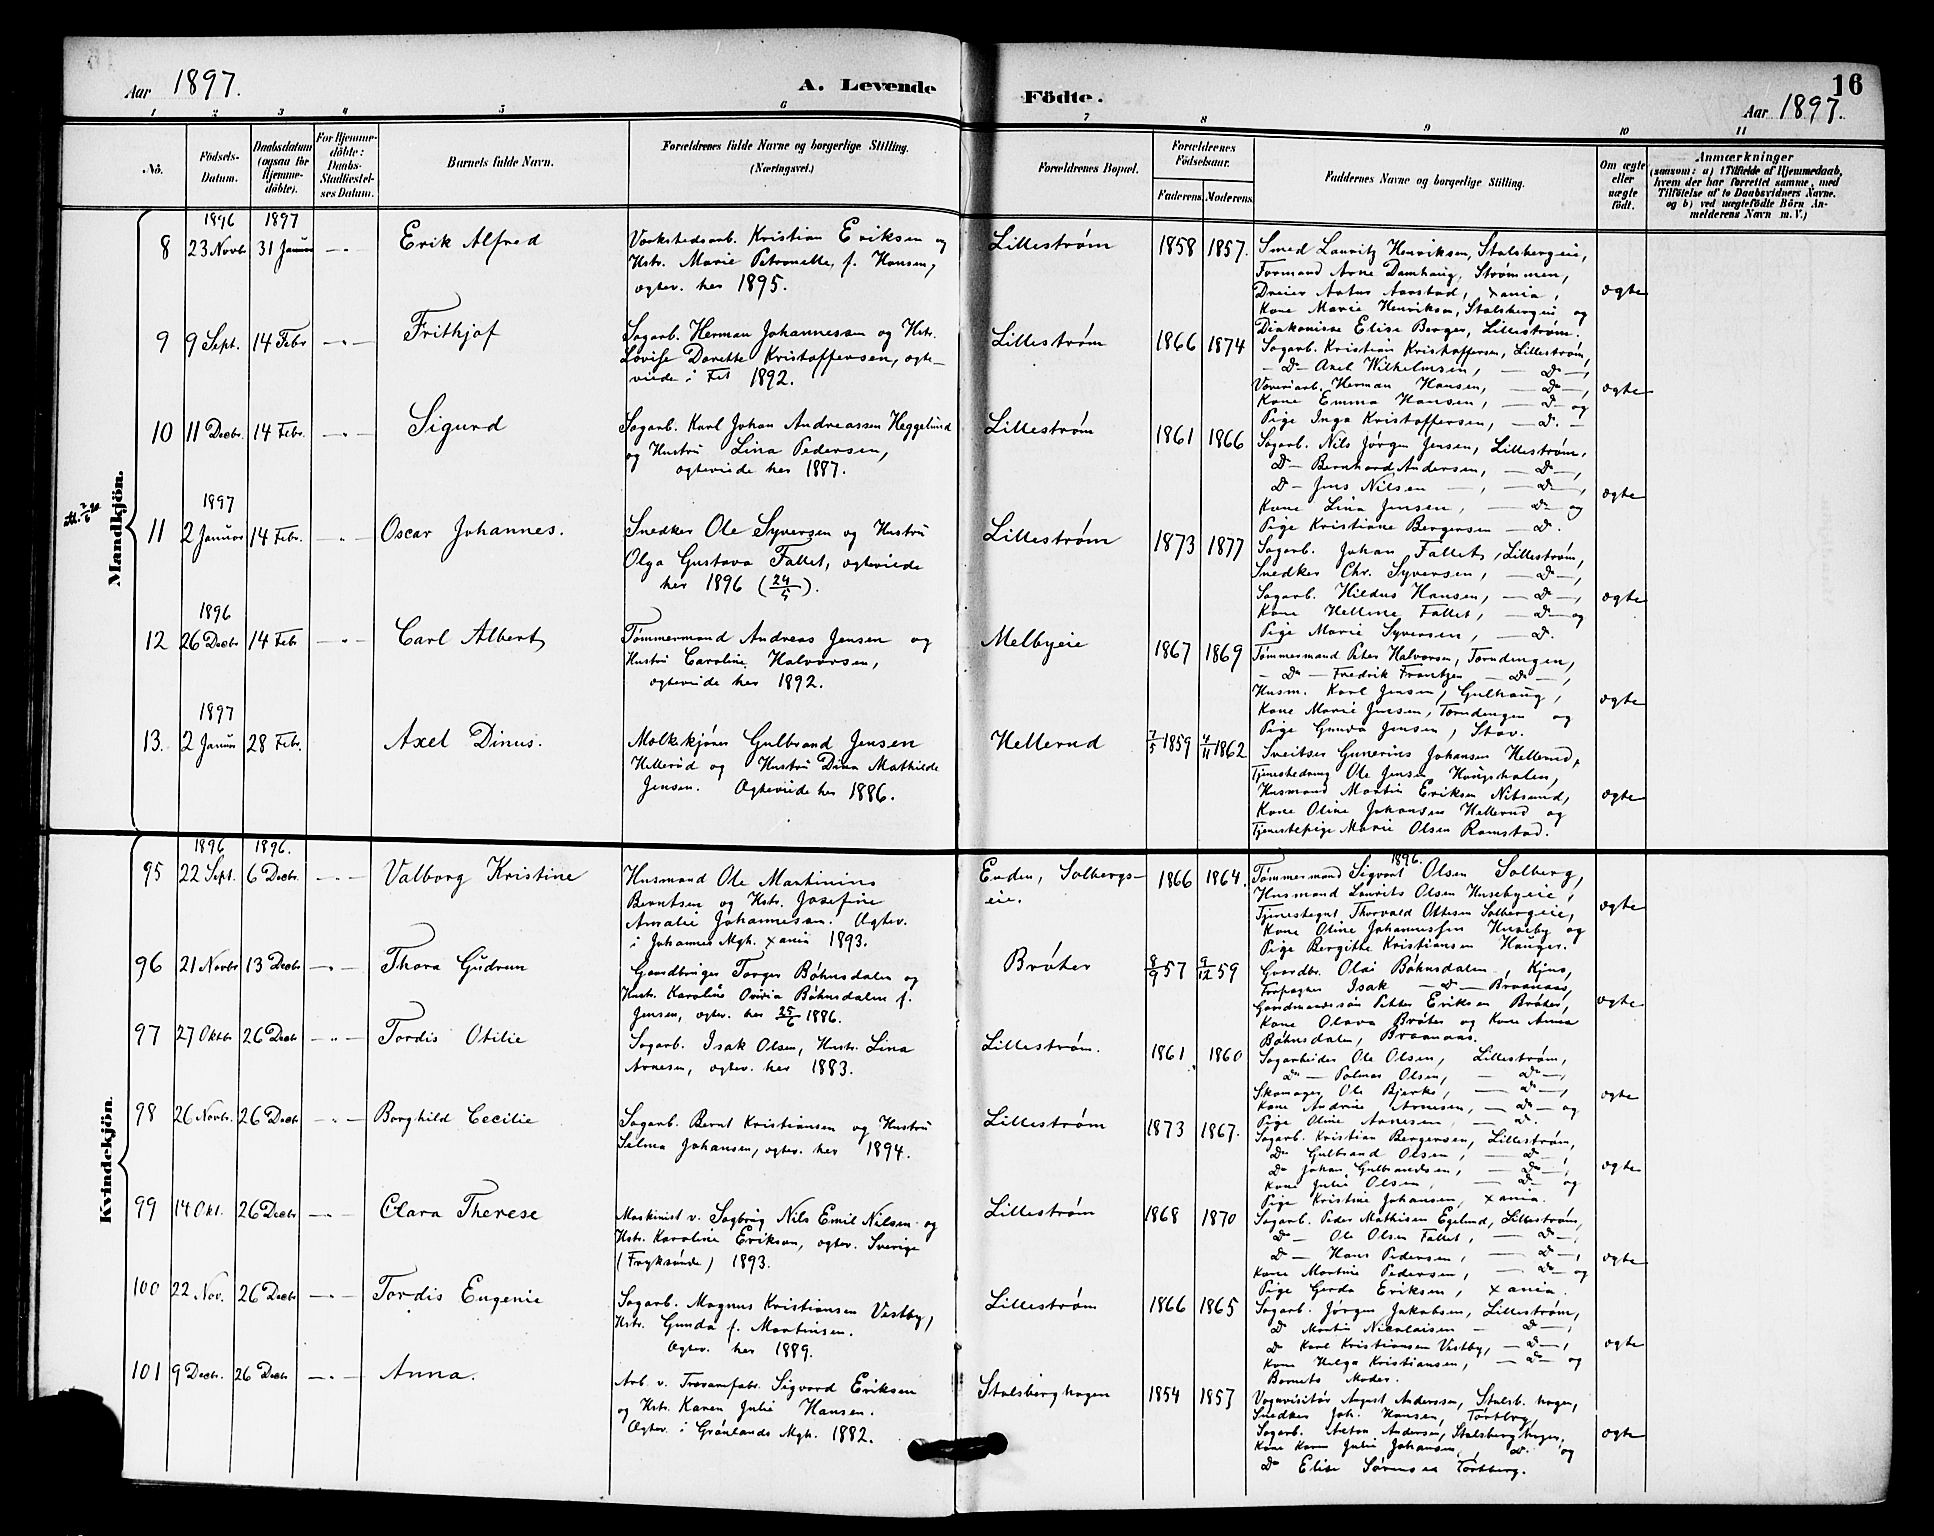 Aar 1897. A. Levende Fødte. 16
Aar 1897.
1 2 3 4 5 6 7 8 9 10 11
No. Födsels-Datum. Daabsdatum (ogsaa for Hjemme-döbte). For Hjemme-döbte: Daabs-Stadfæstel-ses Datum. Barnets fulde Navn. Forældrenes fulde Navne og borgerlige Stilling. (Næringsvei.) Forældrenes Bopæl. Forældrenes Födselsaar. Faderens. Moderens. Faddernes Navne og borgerlige Stilling. Om ægte eller uægte födt. Anmærkninger (saasom: a) i Tilfælde af Hjemmedaab, hvem der har forrettet samme, med Tilföielse af to Daabsvidners Navne, og b) ved uægtefödte Börn An-melderens Navn m. V.)
Mandkjön.
1896 1897
8 23 Novbr 31 Januar Erik Alfred
Verkstedsarb. Kristian Eriksen og
Hstr. Marie Petronelle, f. Hansen,
ægtev. her 1895.
Lillestrøm 1858 1857.
Smed Lauritz Henriksen, Stalsbergeie,
Formand Arne Damhaug, Strømmen,
Dreier Anton Aarstad, Xania,
Kone Marie Henriksen, Stalsbergeie og
Diakonisse Elise Berger, Lillestrøm.
ægte
9 9 Sept. 14 Febr Frithjof
Sagarb. Herman Johannessen og Hstr.
Lovise Dorette Kristoffersen, ægte-
viede i Fet 1892.
Lillestrøm 1866 1874
Sagarb. Kristian Kristoffersen, Lillestrøm,
- Do - Axel Wilhelmsen, - Do -,
Herman Hansen, - Do -,
Kone Emma Hansen, - Do - og
Pige Inga Kristoffersen, - Do. -
ægte
10 11 Decbr. 14 Febr. Sigurd
Sagarb. Karl Johan Andreassen Heggelund
og Hustru Lina Pedersen,
ægteviede her 1887.
Lillestrøm 1861 1866
Sagarb. Nils Jørgen Jensen, Lillestrøm,
Do - Bernhard Andersen, - Do -,
Do - Jens Nilsen -, - Do -,
Kone Lina Jensen, - Do - og
Pige Kristiane Bergersen - Do.
ægte
1897
11 2 Januar 14 Febr. Oscar Johannes.
Snedker Ole Syversen og Hustru
Olga Gustava Fallet, ægteviede
her 1896 (24/5).
Lillestrøm 1873 1877
Sagarb. Johan Fallet, Lillestrøm,
Snedker Chr. Syversen, - Do -,
Sagarb. Hildus Hansen, - Do -,
Kone Helline Fallet, - Do - og
Pige Marie Syversen, - Do.
ægte
1896
12 26 Decbr 14 Febr Carl Albert
Tømmermand Andreas Jensen og
Hustru Caroline Halvorsen,
ægteviede her 1892.
Melbyeie 1867 1869
Tømmermand Peter Halvorsen, Torndengen,
- Do - Fredrik Frantzen - Do -,
Husm. Karl Jensen, Gulhaug,
Kone Marie Jensen, Torndengen og
Pige Gunda Jensen, Stav.
ægte
1897
13. 2 Januar 28 Febr. Axel Dinus.
Melkekjører Gulbrand Jensen
Hellerud og Hustru Dina Mathilde
Jensen. Ægteviede her 1886.
Hellerud 7/5 1859 4/11 1862
Sveitser Gunerius Johansen Hellerud,
Tjenestedreng Ole Jensen
Husmand Martin Eriksen Nitsund,
Kone Oline Johansen Hellerud og
Tjenestepige Marie Olsen Ramstad.
ægte
Kvindekjön.
1896 1896. 1896.
95 22 Sept. 6 Decbr Valborg Kristine
Husmand Ole Martinius
Berntsen og Hstr. Josefine
Amalie Johannesen. Ægtev.
i Johannes Mgh. Xania 1893.
Enden, Solbergs-
eie.
1866 1864.
Tømmermand Sigvart Olsen Solberg,
Husmand Laurits Olsen Husebyeie,
Tjenestegut Thorvald Ottesen Solbergeie,
Kone Oline Johannessen Huseby og
Pige Bergitte Kristiansen Hauger.
ægte
96 21 Novbr 13 Decbr Thora Gudrun
Gaardbruger Torger Bøhnsdalen og
Hustr. Karoline Ovidia Bøhnsdalen f.
Jensen, ægtev. her 25/6 1886.
Brøter 8/9 57 9/12 59
Gaardbr. Olai Bøhnsdalen, Kjus,
Isak - Do - Braanaas,
Gaardmandssøn Petter Eriksen Brøter,
Kone Olava Brøter og Kone Anna
Bøhnsdalen, Braanaas.
ægte
97 27 Oktbr 26 Decbr Tordis Otilie
Sagarb. Isak Olsen, Hustr. Lina
Arnesen, ægtev. her 1883.
Lillestrøm. 1861 1860
Sagarbeider Ole Olsen, Lillestrøm,
Do - Palmer Olsen, - Do -,
Skomager Ole Bjerke, - Do -,
Kone Andrine Arnesen, - Do - og
Pige Oline Arnesen, - Do.
ægte
98 26 Novbr. 26 Decbr Borghild Cecilie
Sagarb. Bernt Kristiansen og Hustru
Selma Johansen, ægtev. her 1894.
Lillestrøm 1873 1867.
Sagarb. Kristian Bergersen, Lillestrøm,
Do Gulbrand Olsen, - Do -,
Do Johan Gulbrandsen, - Do -,
Kone Julie Olsen, - Do - og
Pige Kristine Johansen, Xania.
ægte
99 14 Okt. 26 Decbr Clara Therese
Maskinist v. Sagbrug Nils Emil Nilsen og
Hstr. Karoline Erikson, ægtev. Sverige
(Fryksände) 1893.
Lillestrøm 1868 1870
Sagarb. Peder Mathisen Egelund, Lillestrøm,
Do - Ole Olsen Fallet, - Do -,
Do - Hans Pedersen, - Do -,
Kone Martine Pedersen, - Do - og
Pige Gerda Eriksen, Xania.
ægte
100 22 Nov. 26 Decbr Tordis Eugenie
Sagarb. Magnus Kristiansen Vestby,
Hstr. Gunda f. Martinsen.
Ægtev. her 1889.
Lillestrøm 1866 1865
Sagarb. Jørgen Jakobsen, Lillestrøm,
Do Martin Nicolaisen - Do -,
Do Karl Kristiansen Vestby, - Do -,
Kone Helga Kristiansen, - Do - og
Barnets Moder.
ægte
101 9 Decbr. 26 Decbr Anna.
Arb. v. Trævarefabr. Sigvard Eriksen
og Hstr. Karen Julie Hansen.
Ægtev. i Grønlands Mgh. 1882.
Stalsberghagen 1854 1857
Vognvisitør August Anderssen, Stalsb. hagen,
Snedker Joh. Hansen, Tørtberg,
Sagarb. Anton Andersen, Stalsberghagen,
Kone Karen Julie Johansen, Do. og
Do Elise Sørensen Tørtberg.
ægte